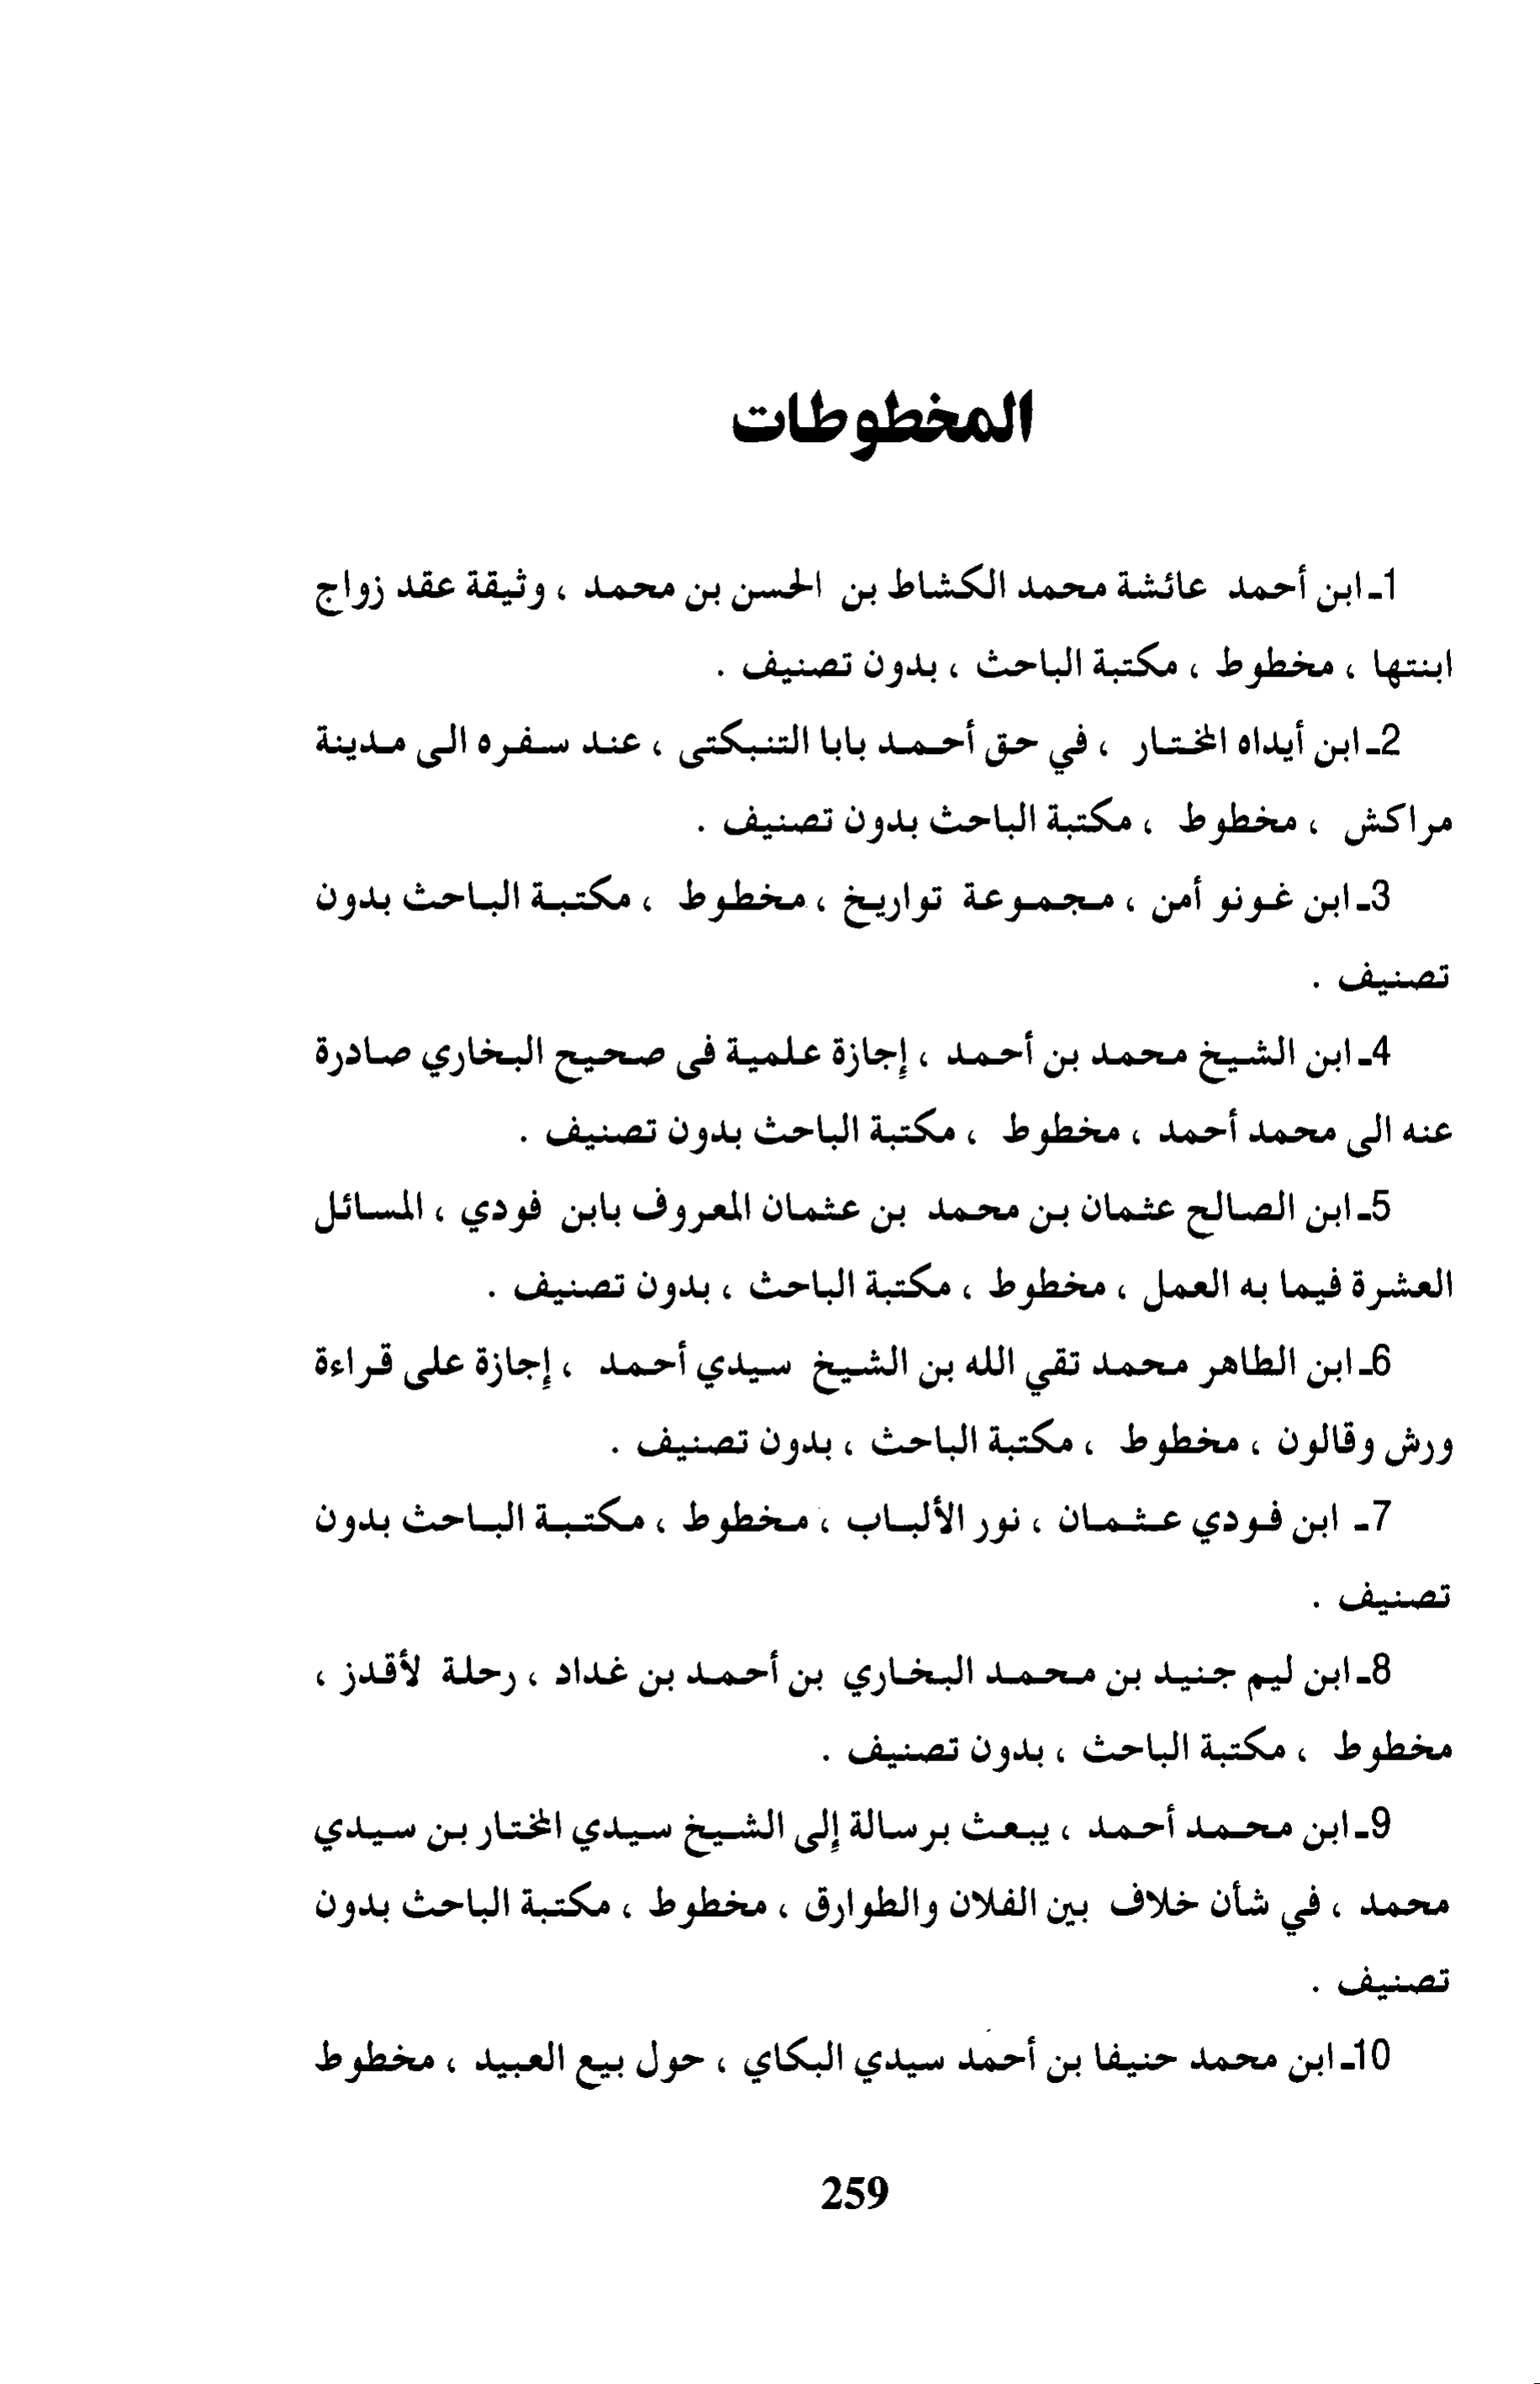 المخطوطات
1ـ ابن أحمد عائشة محمد الكشاط بن الحسن بن محمد ، وثيقة عقد زواج
ابنتها ، مخطوط ، مكتبة الباحث ، بدون تصنيف .
2ـ ابن أيداه المختار ، في حق أحمد بابا التنبكتى ، عند سفره الى مدينة
مراكش ، مخطوط ، مكتبة الباحث بدون تصنيف .
3ـ ابن غونو أمن ، مجموعة تواريخ ، مخطوط ، مكتبة الباحث بدون
تصنيف .
4ـ ابن الشيخ محمد بن أحمد ، إجازة علمية فى صحيح البخاري صادرة
عنه الى محمد أحمد ، مخطوط ، مكتبة الباحث بدون تصنيف .
5ـ ابن الصالح عثمان بن محمد بن عثمان المعروف بابن فودي ، المسائل
العشرة فيما به العمل ، مخطوط ، مكتبة الباحث ، بدون تصنيف .
6ـ ابن الطاهر محمد تقي الله بن الشيخ سيدي أحمد ، إجازة على قراءة
ورش وقالون ، مخطوط ، مكتبة الباحث ، بدون تصنيف .
7ـ ابن فودي عثمان ، نور الألباب ، مخطوط ، مكتبة الباحث بدون
تصنيف .
8ـ ابن ليم جنيد بن محمد البخاري بن أحمد بن غداد ، رحلة لأقدز ،
مخطوط ، مكتبة الباحث ، بدون تصنيف .
9ـ ابن محمد أحمد ، يبعث برسالة إلى الشيخ سيدي المختار بن سيدي
محمد ، في شأن خلاف بين الفلان والطوارق ، مخطوط ، مكتبة الباحث بدون
تصنيف .
10ـ ابن محمد حنيفا بن أحمد سيدي البكاي ، حول بيع العبيد ، مخطوط
259